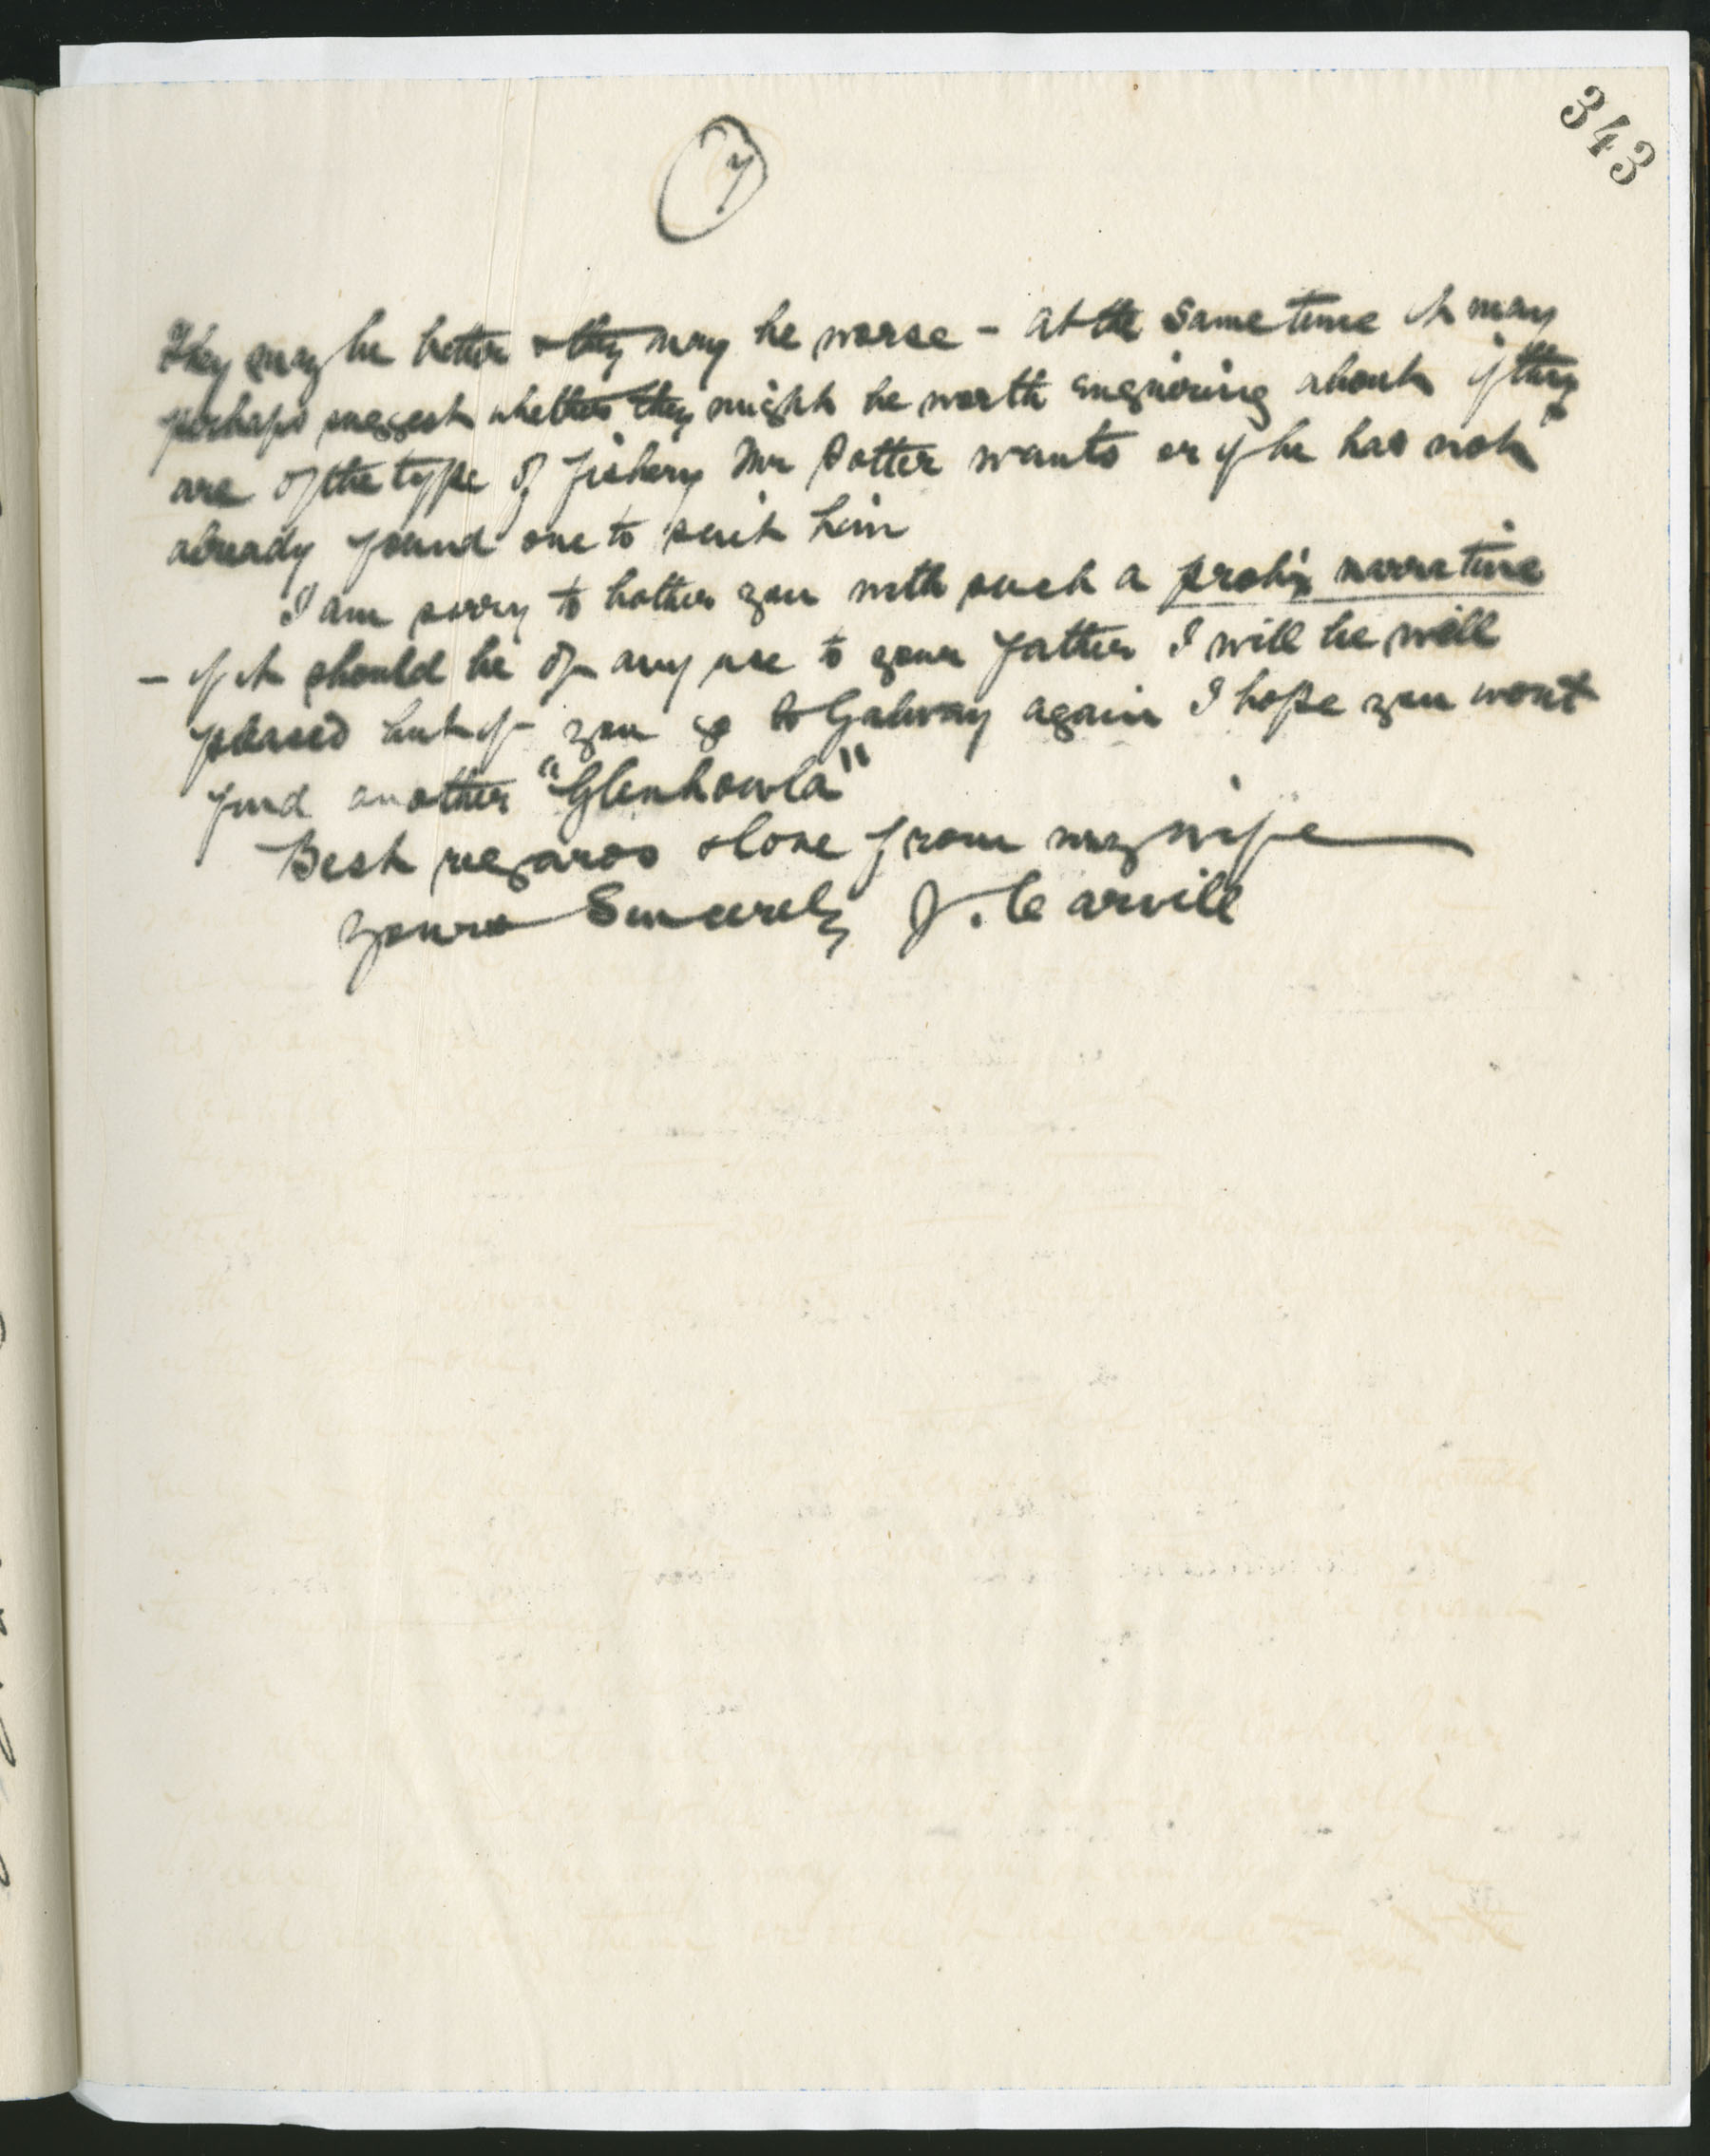 343
7
They may be better & they may be worse - at the same time it may
perhaps suggest whether they might be worth enquiring about if they
are of the type of fishery Mr Potter wants or if he has not
already found one to suit him
I am sorry to bother you with such a prolix narrative
- if it should be of any use to your father I will be well
pleased but if you go to Galway again I hope you wont
find another "Glenhowla"
Best regards & love from my wife
yours Sincerely J. Carvill